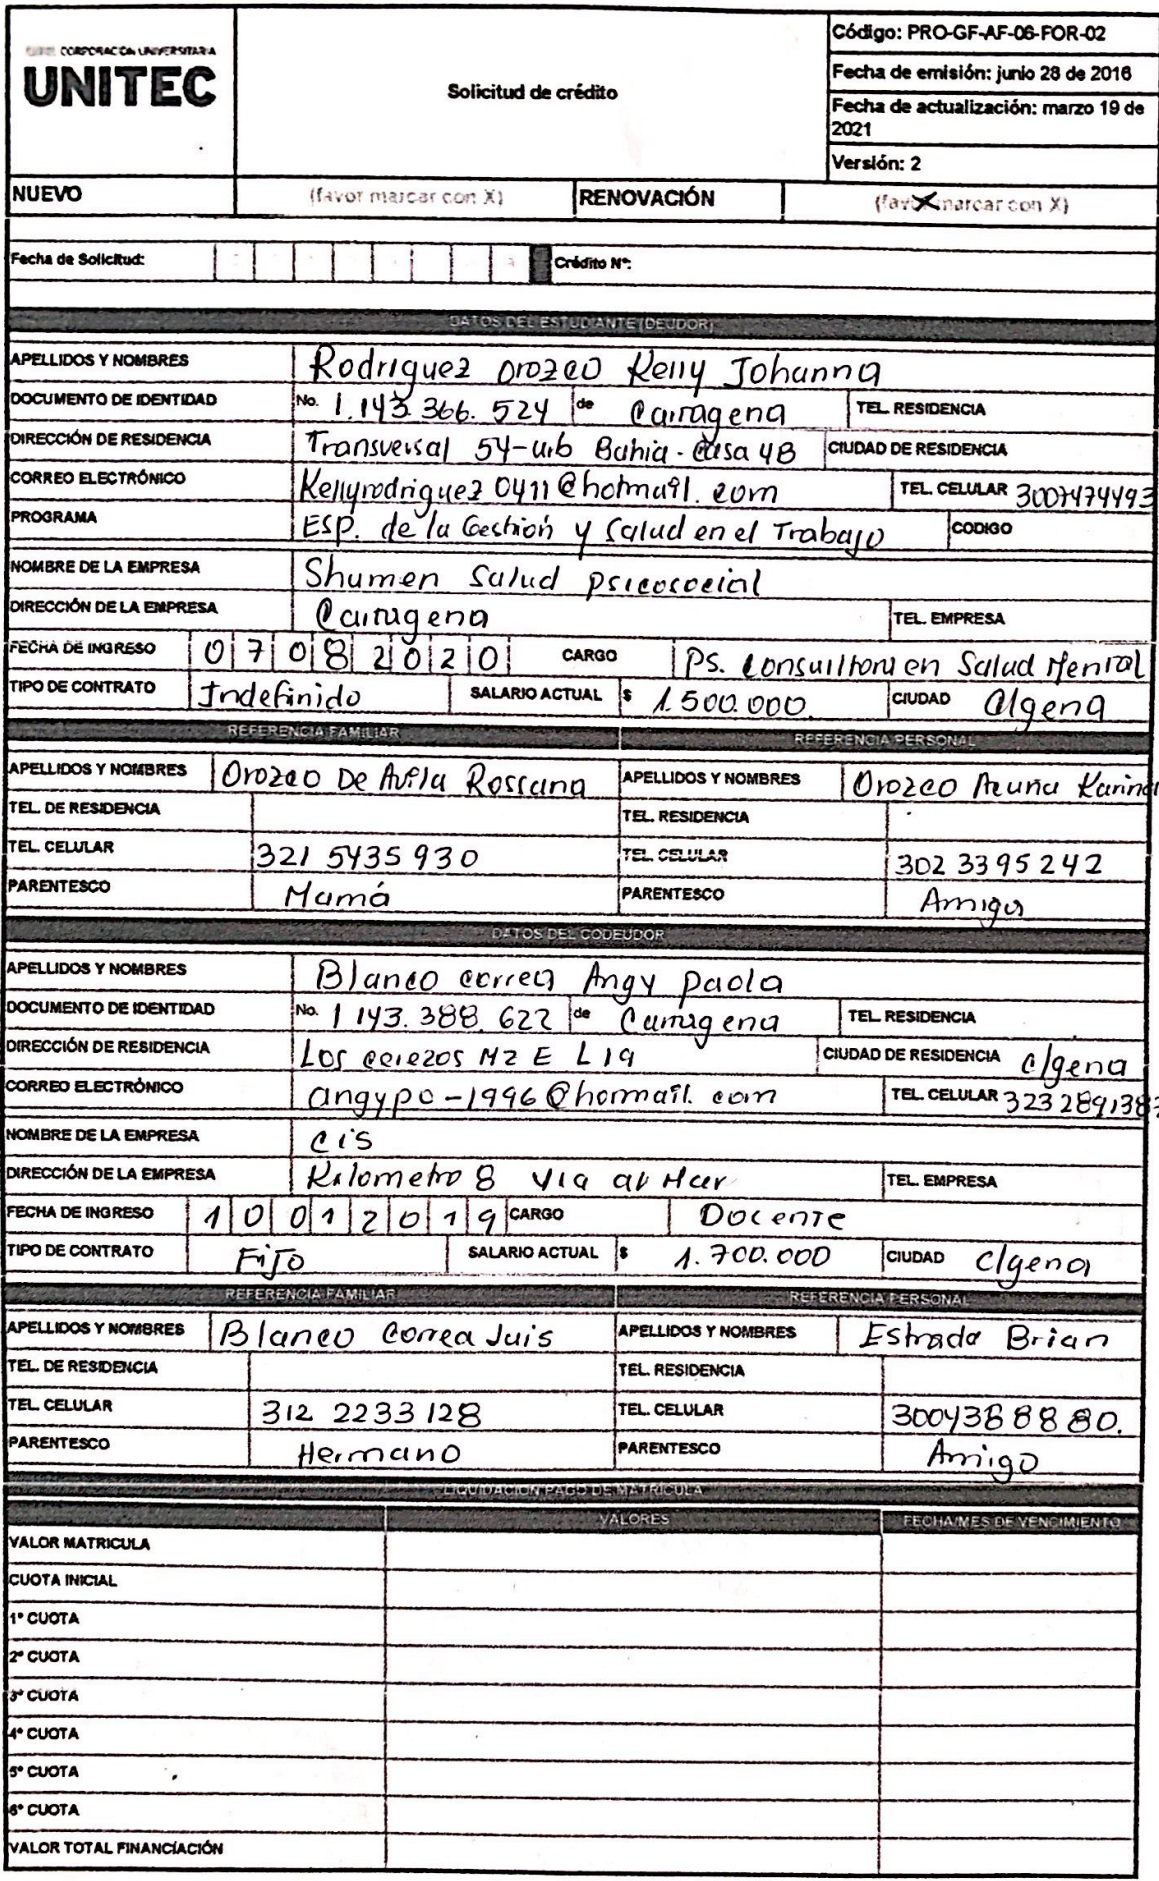 CORPORACIÓN UNIVERSITARIA
UNITEC
Solicitud de crédito
Código: PRO-GF-AF-06-FOR-02
Fecha de emisión: junio 28 de 2016
Fecha de actualización: marzo 19 de
2021
Versión: 2
NUEVO (favor marcar con X) RENOVACIÓN (favor marcar con X)
Fecha de Solicitud: Crédito N°:
DATOS DEL ESTUDIANTE (DEUDOR)
APELLIDOS Y NOMBRES Rodriguez orozco Kelly Johanna
DOCUMENTO DE IDENTIDAD No. 1.143.366.524 de Cartagena TEL. RESIDENCIA
DIRECCIÓN DE RESIDENCIA Transversal 54-urb Bahia-casa 4B CIUDAD DE RESIDENCIA
CORREO ELECTRÓNICO Kellyrodriguez0411@hotmail.com TEL. CELULAR 3007474493
PROGRAMA ESP. de la Gestión y Salud en el Trabajo CODIGO
NOMBRE DE LA EMPRESA Shumen Salud psicosocial
DIRECCIÓN DE LA EMPRESA Cartagena TEL. EMPRESA
FECHA DE INGRESO 07082020 CARGO Ps. Consultora en Salud Mental
TIPO DE CONTRATO Indefinido SALARIO ACTUAL $ 1.500.000. CIUDAD C/gena
REFERENCIA FAMILIAR REFERENCIA PERSONAL
APELLIDOS Y NOMBRES Orozco De Avila Rossana APELLIDOS Y NOMBRES Orozco Acuña Karina
TEL. DE RESIDENCIA TEL. RESIDENCIA
TEL. CELULAR 321 5435930 TEL. CELULAR 302 3395242
PARENTESCO Mamá PARENTESCO Amiga
DATOS DEL CODEUDOR
APELLIDOS Y NOMBRES Blanco correa Angy paola
DOCUMENTO DE IDENTIDAD No. 1143.388.622 de Cartagena TEL. RESIDENCIA
DIRECCIÓN DE RESIDENCIA Los cerezos Mz E L 19 CIUDAD DE RESIDENCIA c/gena
CORREO ELECTRÓNICO angypc-1996@hotmail.com TEL. CELULAR
NOMBRE DE LA EMPRESA cis
DIRECCIÓN DE LA EMPRESA Kilometro 8 via al Mar TEL. EMPRESA
FECHA DE INGRESO 10012019 CARGO Docente
TIPO DE CONTRATO Fijo SALARIO ACTUAL $ 1.700.000 CIUDAD c/gena
REFERENCIA FAMILIAR REFERENCIA PERSONAL
APELLIDOS Y NOMBRES Blanco Correa Luis APELLIDOS Y NOMBRES Estrada Brian
TEL. DE RESIDENCIA TEL. RESIDENCIA
TEL. CELULAR 312 2233128 TEL. CELULAR 3004388880.
PARENTESCO Hermano PARENTESCO Amigo
LIQUIDACION PAGO DE MATRICULA
VALORES FECHA/MES DE VENCIMIENTO
VALOR MATRICULA
CUOTA INICIAL
1° CUOTA
2° CUOTA
3° CUOTA
4° CUOTA
5° CUOTA
6° CUOTA
VALOR TOTAL FINANCIACIÓN